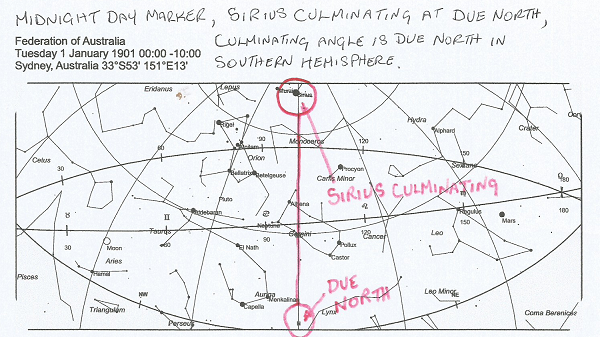 MIDNIGHT DAY MARKER, SIRIUS CULMINATING AT DUE NORTH,
Federation of Australia
CULMINATING ANGLE IS DUE NORTH IN
Tuesday 1 January 1901 00:00 -10:00
SOUTHERN HEMISPHERE.
Sydney, Australia 33°S53' 151°E13'
Eridanus
Lepus
Sirius
Hydra
Crater
Rigel
Alphard
Corvus
90
Monoceros
120
60
Cetus
Orion
150
Sextans
30
Procyon
Bellatrix
Betelgeuse
Canis Minor
180
Pluto
SIRIUS CULMINATING
Alhena
Regulus
180
Aldebaran
Neptune
150
Mars
Taurus
120
30
60
Gemini
Cancer
Leo
90
Moon
El Nath
Pollux
Castor
Aries
Pisces
Hamal
DUE
NORTH
NW
Auriga
Menkalinan
Leo Minor
NE
Capella
Triangulum
Perseus
N
Lynx
Coma Berenices